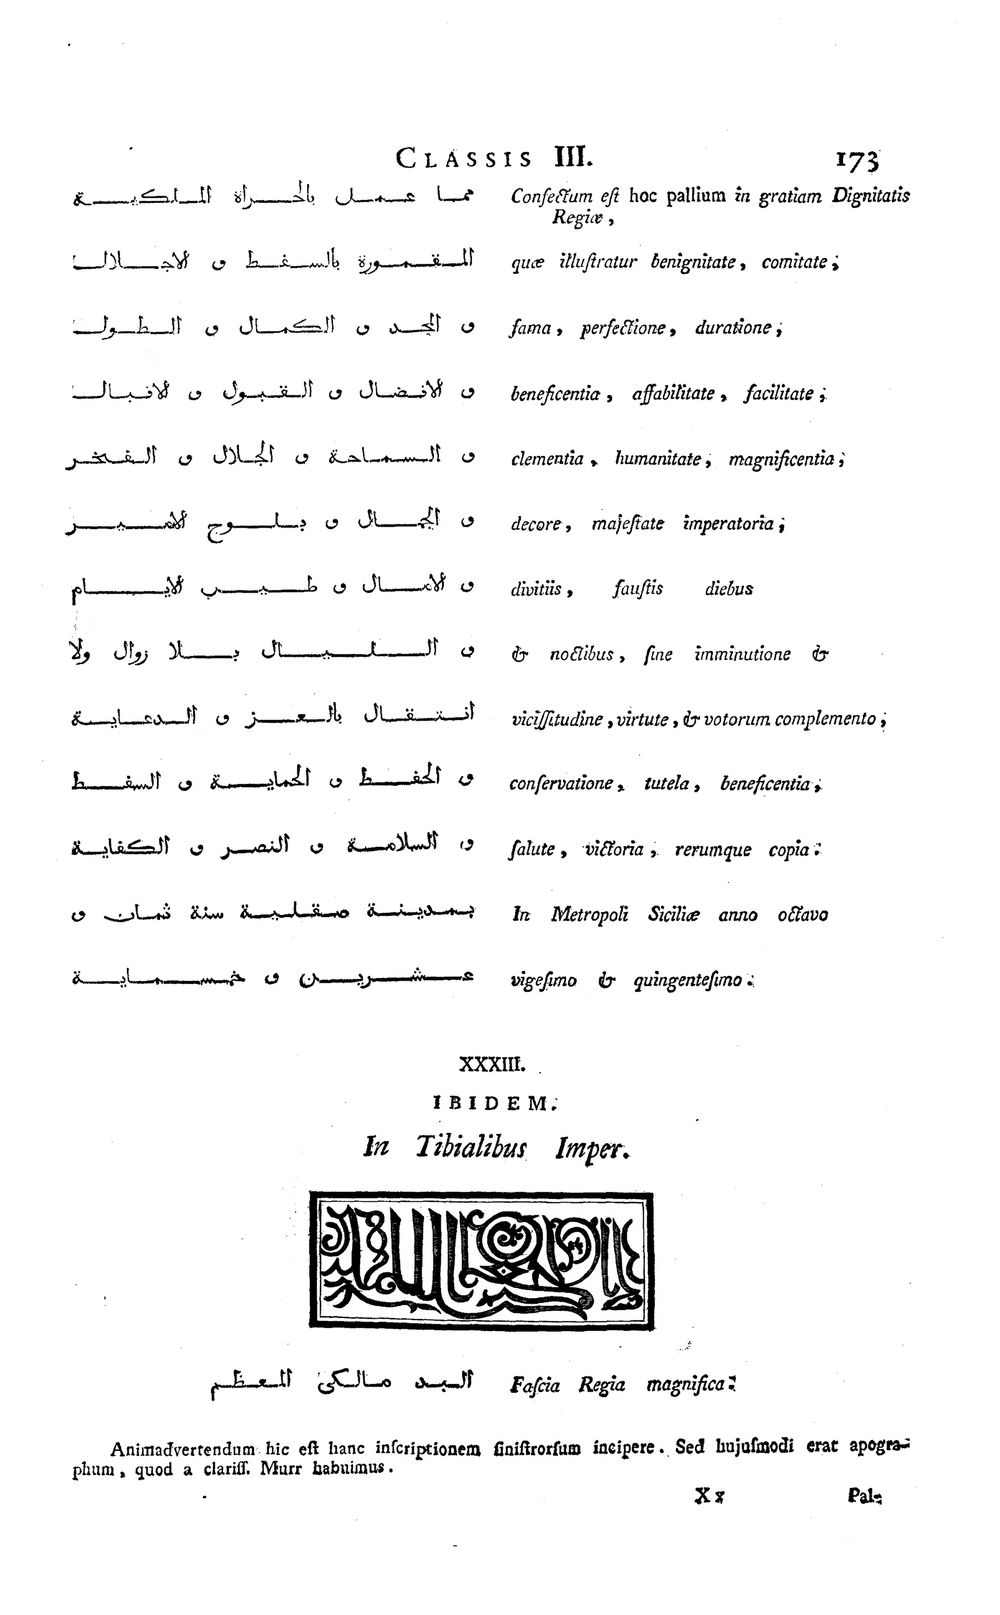 CLASSIS III. 173
مما عمل بالخزاة الملكية Confectum est hoc pallium in gratiam Dignitatis
Regiæ,
المقمورة بالسفط و الاجلال quæ illustratur benignitate, comitate;
و المجد و الكمال و الطول fama, perfectione, duratione;
و الافضال و القبول و الاقبال beneficentia, affabilitate, facilitate;
و السماحة و الجلال و الفخر clementia, humanitate, magnificentia;
و الجمال و بلوج الامير decore, majestate imperatoria;
و الامال و طيب الايام divitiis, faustis diebus
و الليال بلا زوال ولا & noctibus, sine imminutione &
انتقال بالعز و الدعاية vicissitudine, virtute, & votorum complemento;
و الحفظ و الحماية و السفط conservatione, tutela, beneficentia;
و السلامة و النصر و الكفاية salute, victoria, rerumque copia:
بمدينة صقلية سنة ثمان و In Metropoli Siciliæ anno octavo
عشرين و خمسماية vigesimo & quingentesimo.
XXXIII.
IBIDEM.
In Tibialibus Imper.
البد مالكي المعظم Fascia Regia magnifica:
Animadvertendum hic est hanc inscriptionem sinistrorsum incipere. Sed hujusmodi erat apogra-
phum, quod a clariss. Murr habuimus.
Xx Pal-